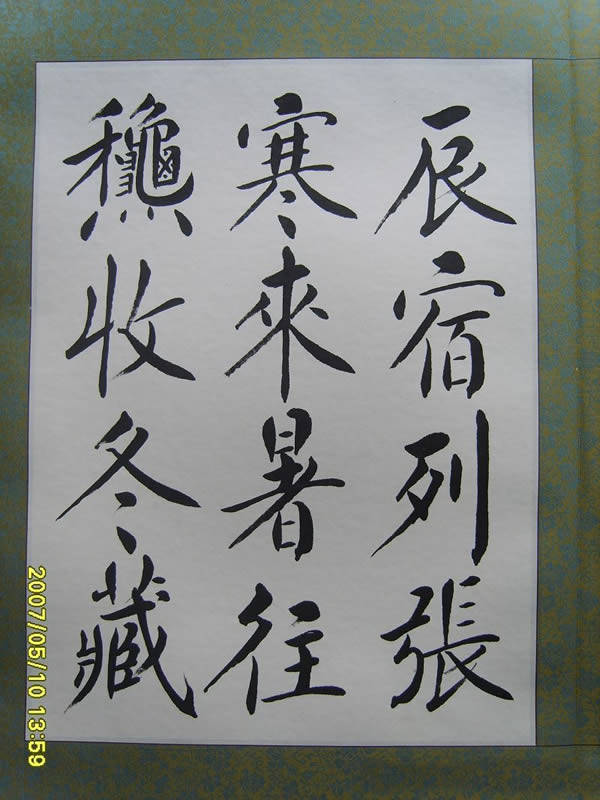 辰宿列張
寒來暑往
龝收冬藏
2007/05/10 13:59